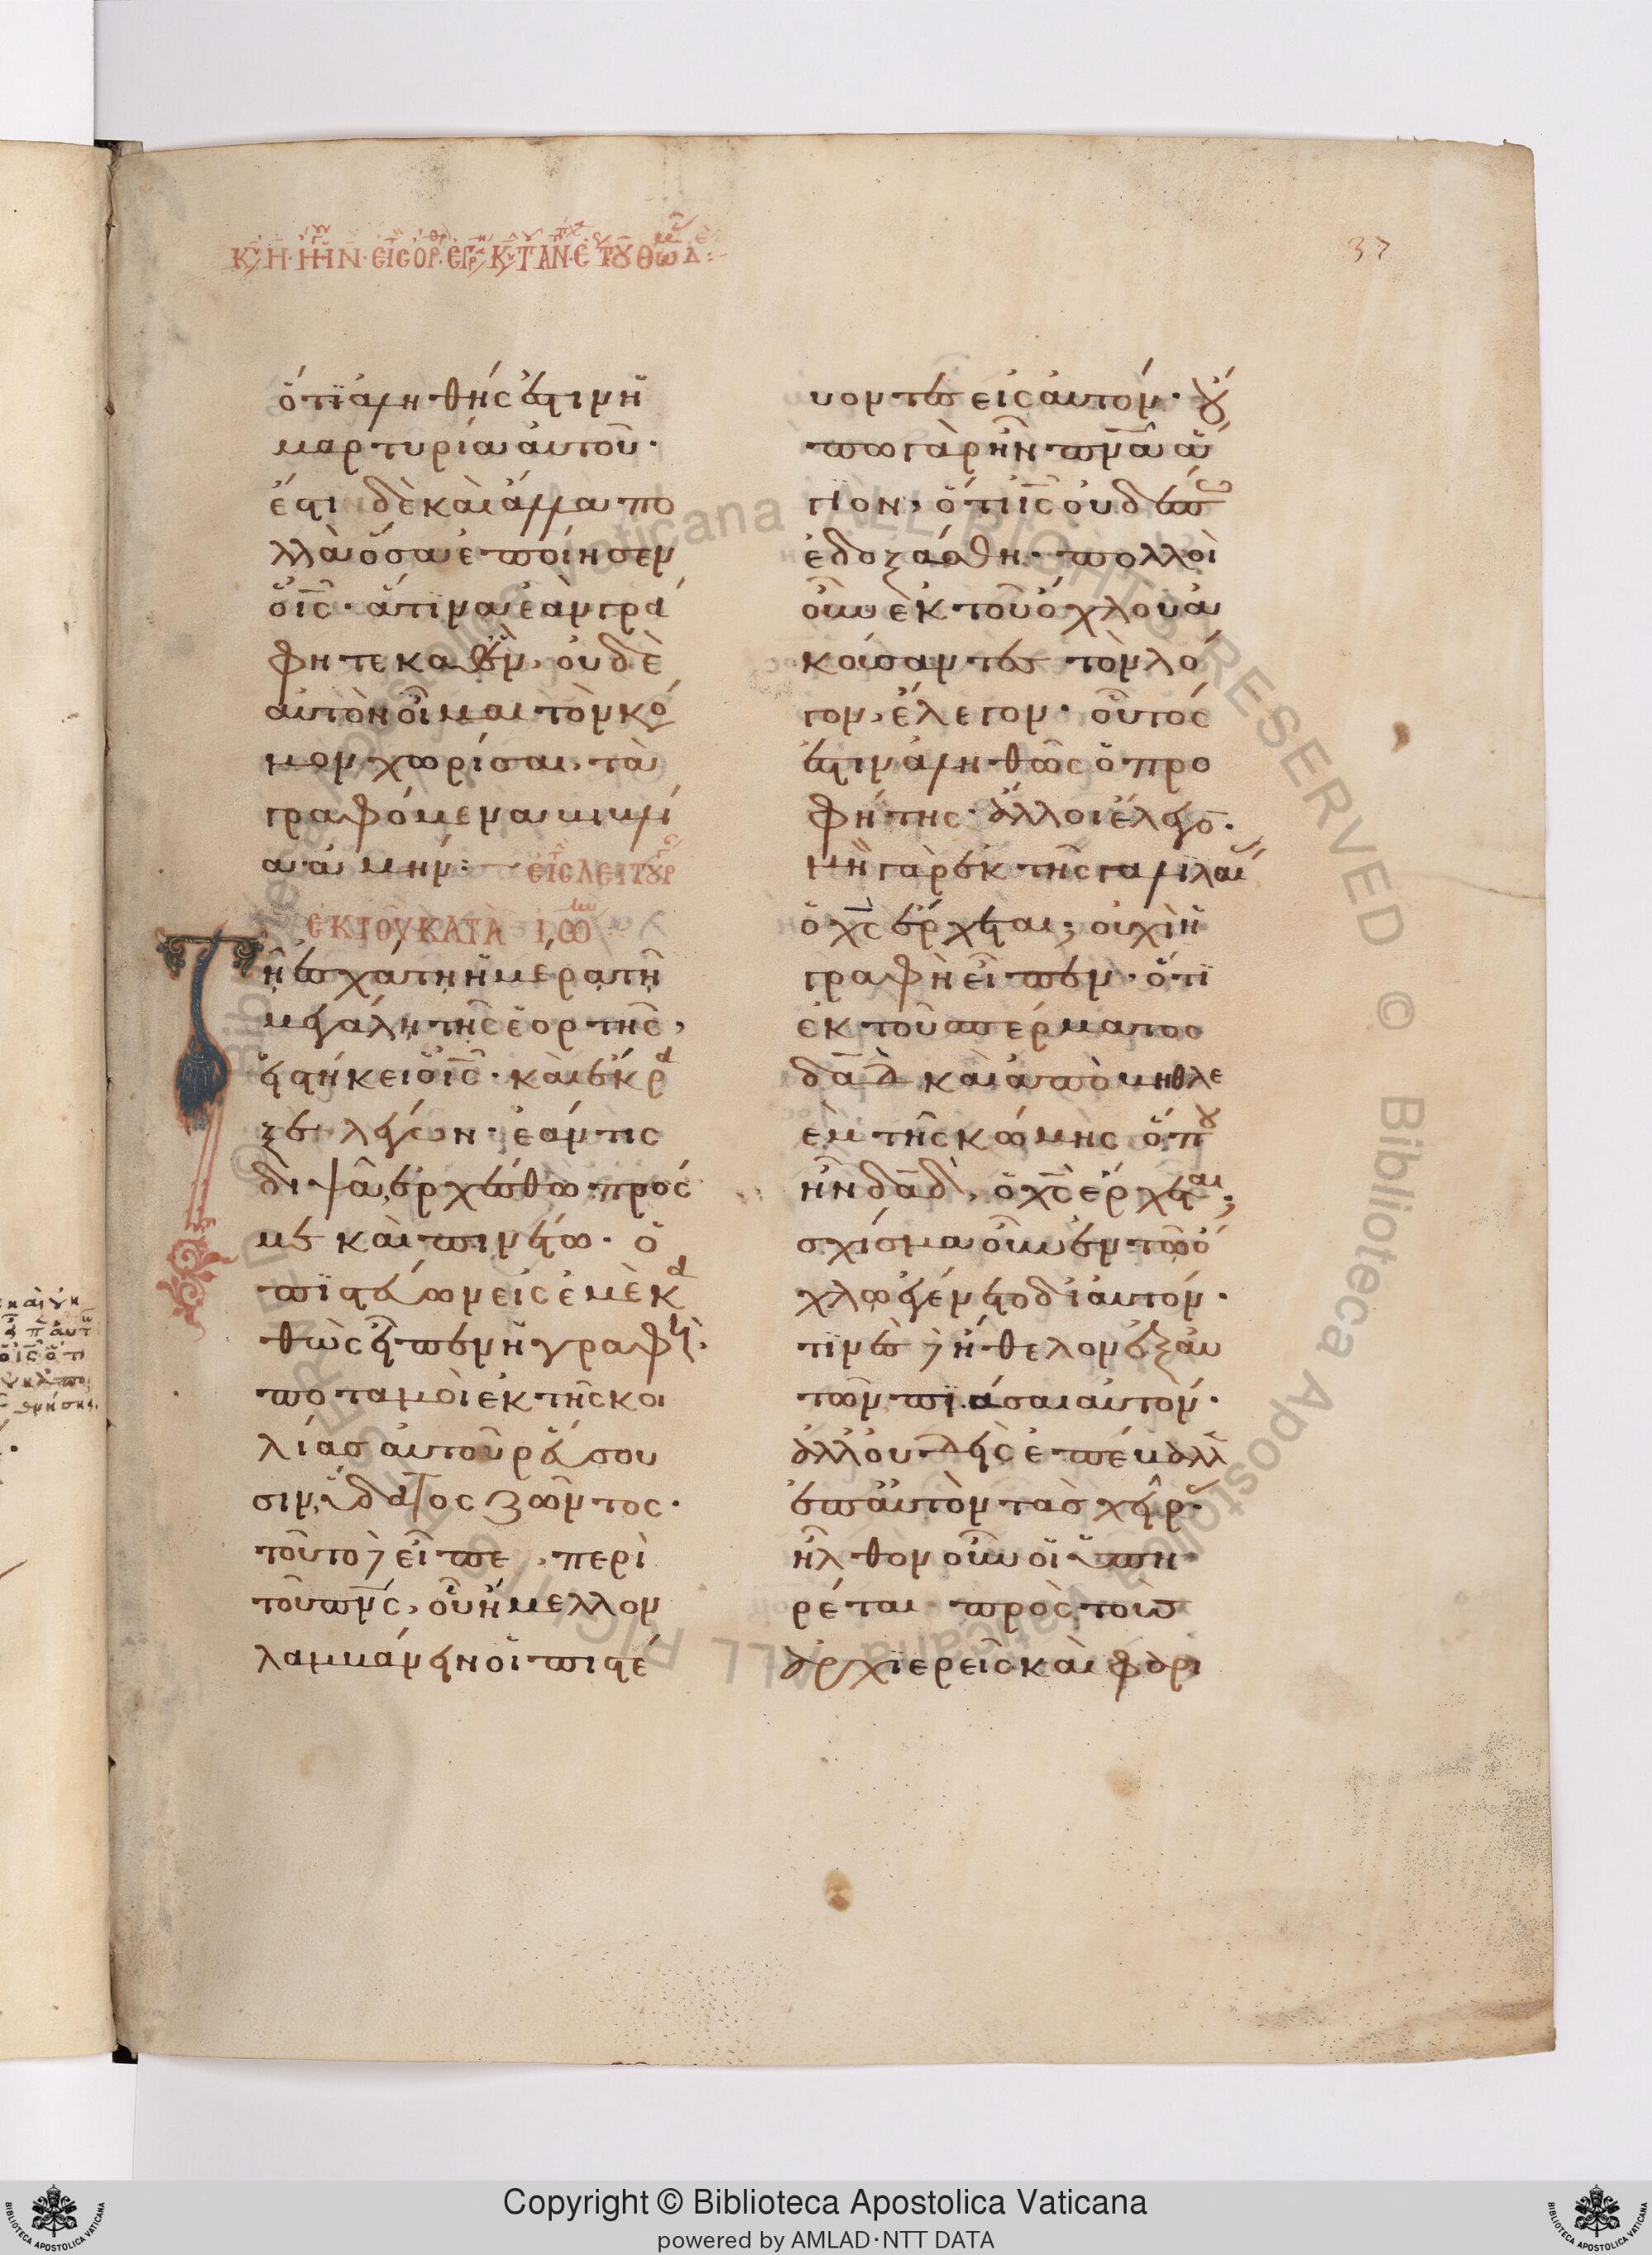 37
ὅτι ἀληθής ἐστιν ἡ
μαρτυρία αὐτοῦ·
ἔστι δὲ καὶ ἄλλα πο
λλὰ ὅσα ἐποίησεν
ὁ ις· ἅτινα ἐὰν γρά
φητε καθ ἕν, οὐδὲ
αὐτὸν οἶμαι τὸν κό
μον χωρίσαι, τὰ
γραφόμενα
ἀμήν: εἰς λειτουρ
ἐκ τοῦ κατὰ ἰω
Τῆ ἐσχάτη ἡμέρα τῆ
μεγάλη τῆς ἑορτῆς,
εἱστήκει ὁ ις· καὶ ἔκρα
ζε λέγων· ἐάν τις
διψᾶ, ἐρχέσθω πρός
με καὶ πινέτω· ὁ
πιστεύων εἰς ἐμὲ κα
θὼς εἶπεν ἡ γραφή·
ποταμοὶ ἐκ τῆς κοι
λίας αὐτοῦ ῥεύσου
σιν, ὕδατος ζῶντος·
τοῦτο δὲ εἶπε, περὶ
τοῦ πνς, οὗ ἤμελλον
λαμβάνειν οἱ πιστεύ
υοντες εἰς αὐτόν· οὔ
πω γὰρ ἦν πνα ἅ
γιον, ὅτι ις οὐδέπω
ἐδοξάσθη· πολλοὶ
οὖν ἐκ τοῦ ὄχλου ἀ
κούσαντες τὸν λό
γον, ἔλεγον· οὗτός
ἐστιν ἀληθῶς ὁ προ
φήτης· ἄλλοι ἔλεγον·
μὴ γὰρ ἐκ τῆς γαλιλαί
ὁ χς ἔρχεται; οὐχὶ ἡ
γραφὴ εἶπεν· ὅτι
ἐκ τοῦ σπέρματος
δαδ καὶ ἀπὸ βηθλε
ὲμ τῆς κώμης ὅπου
ἦν δαδ, ὁ χς ἔρχεται;
σχίσμα οὖν ἐν τῶ ὄ
χλω ἐγένετο δι αὐτόν·
τινὲς δὲ ἤθελον ἐξ αὐ
τῶν πιάσαι αὐτόν·
ἀλλ οὐδεὶς ἐπέβαλλ
ἐπ αὐτὸν τὰς χεῖρας·
ἦλθον οὖν οἱ ὑπη
ρέται πρὸς τοὺς
ἀρχιερεῖς καὶ φαρι
© Biblioteca Apostolica Vaticana ALL RIGHTS RESERVED
Copyright © Biblioteca Apostolica Vaticana
powered by AMLAD·NTT DATA
BIBLIOTECA APOSTOLICA VATICANA
BIBLIOTECA APOSTOLICA VATICANA